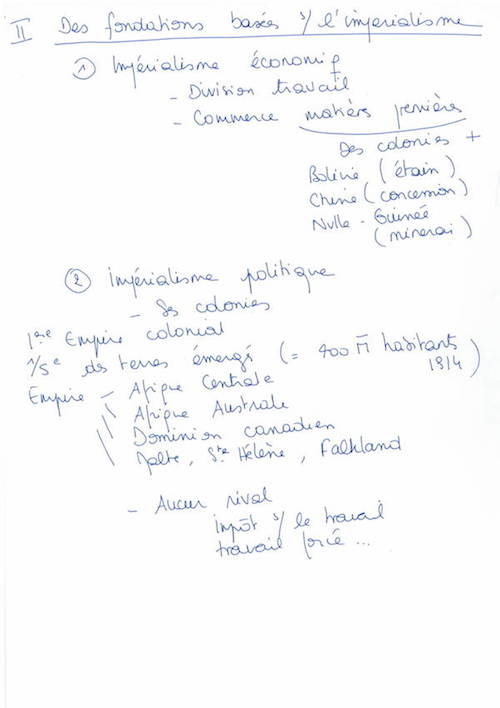 II Des fondations basées s/ l'impérialisme
1 Impérialisme économiq
- Division travail
- Commerce matières premières
Des colonies +
Bolivie (étain)
Chine (concession)
Nvlle-Guinée
(minerai)
2 impérialisme politique
- Ses colonies
1ère Empire colonial
1/5e des terres émergé (= 400 M habitants
1914)
Empire - Afrique Centrale
\ Afrique Australe
\ Dominion canadien
\ Malte, Ste Hélène, Falkland
- Aucun rival
impôt s/ le travail
travail forcé ...